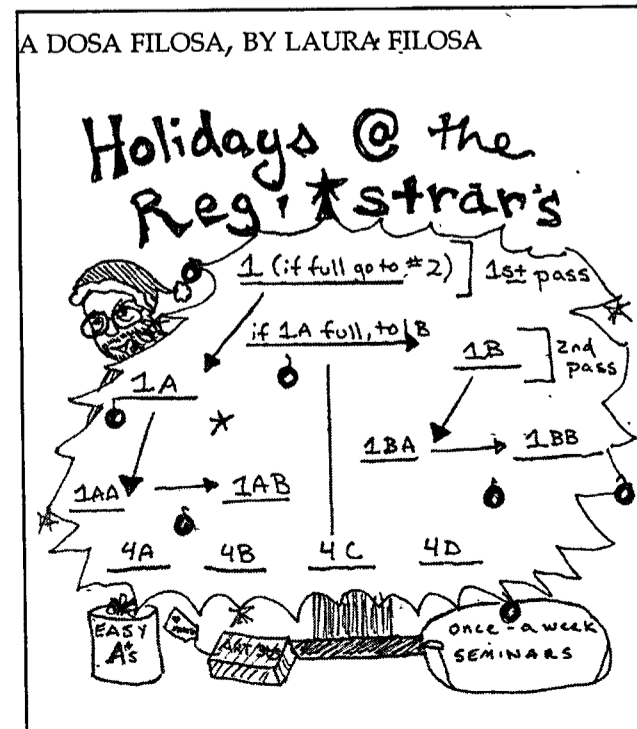 A DOSA FILOSA, BY LAURA FILOSA
Holidays @ the
Registrar's
1 (if full go to #2)
1st pass
if 1A full, to 1B
1B
2nd
pass
1A
1BA
1BB
1AA
1AB
4A
4B
4C
4D
EASY
A's
ART
once-a week
SEMINARS